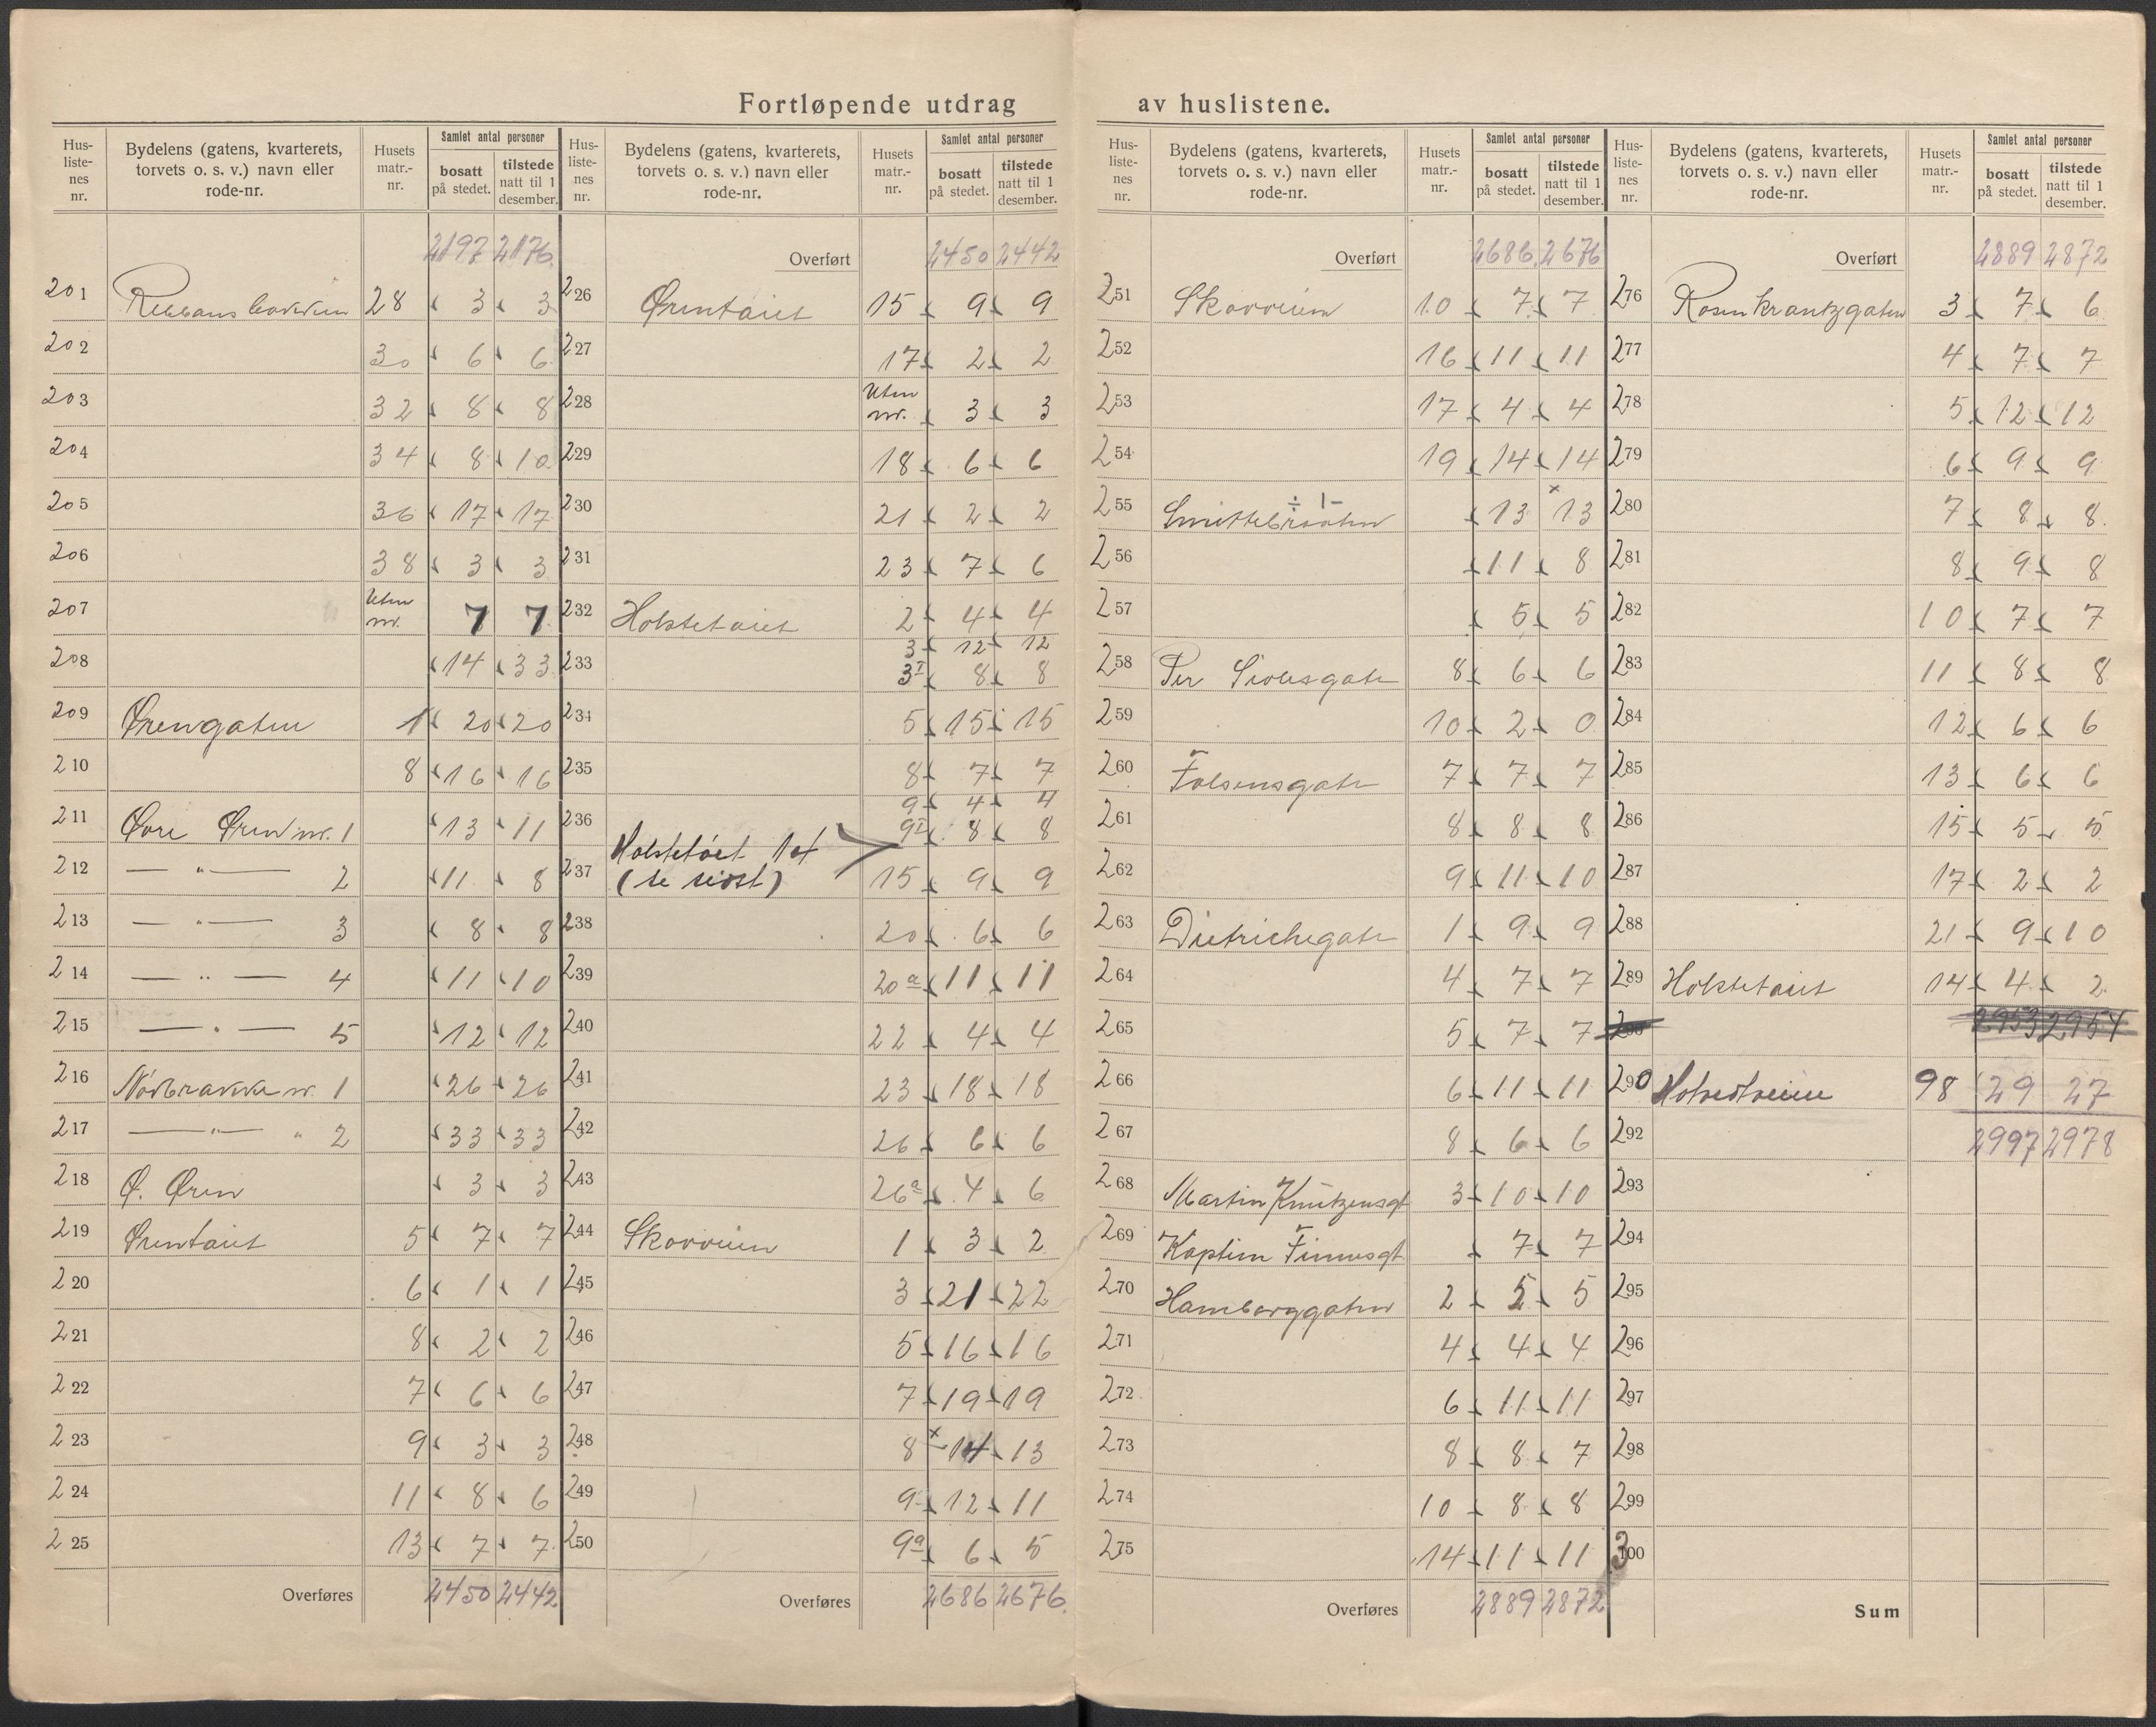 Fortløpende utdrag av huslistene.
Hus-listenes nr. | Bydelens (gatens, kvarterets, torvets o. s. v.) navn eller rode-nr. | Husets matr.-nr. | Samlet antal personer | bosatt på stedet. | tilstede natt til 1 desember.
2197 2176
201 28 3 3
202 30 6 6
203 32 8 8
204 34 8 10
205 36 17 17
206 38 3 3
207 Uten nr. 7 7
208 14 33
209 Ørengaten 1 20 20
210 8 16 16
211 Øvre Øren nr. 1 13 11
212 — " — 2 11 8
213 — " — 3 8 8
214 — " — 4 11 10
215 — " — 5 12 12
216 Nødbrakke nr. 1 26 26
217 — " — " 2 33 33
218 Ø. Øren 3 3
219 Ørentaiet 5 7 7
220 6 1 1
221 8 2 2
222 7 6 6
223 9 3 3
224 11 8 6
225 13 7 7
Overføres 2450 2442
Hus-listenes nr. | Bydelens (gatens, kvarterets, torvets o. s. v.) navn eller rode-nr. | Husets matr.-nr. | Samlet antal personer | bosatt på stedet. | tilstede natt til 1 desember.
Overført 2450 2442
226 Ørentaiet 15 9 9
227 17 2 2
228 Uten nr. 3 3
229 18 6 6
230 21 2 2
231 23 7 6
232 Holstetaiet 2 4 4
3 12 12
233 3I 8 8
234 5 15 15
235 8 7 7
9 4 4
236 9I 8 8
Holstetaiet 14
237 (se sidst) 15 9 9
238 20 6 6
239 20a 11 11
240 22 4 4
241 23 18 18
242 26 6 6
243 26a 4 6
244 Skovveien 1 3 2
245 3 21 22
246 5 16 16
247 7 19 19
248 8 x 14 13
249 9 12 11
250 9a 6 5
Overføres 2686 2676
Hus-listenes nr. | Bydelens (gatens, kvarterets, torvets o. s. v.) navn eller rode-nr. | Husets matr.-nr. | Samlet antal personer | bosatt på stedet. | tilstede natt til 1 desember.
Overført 2686 2676
251 Skovveien 10 7 7
252 16 11 11
253 17 4 4
254 19 14 14
÷ 1- x
255 13 13
256 11 8
257 5 5
258 Per Sivlesgate 8 6 6
259 10 2 0
260 Falsensgate 7 7 7
261 8 8 8
262 9 11 10
263 Dietrichsgate 1 9 9
264 4 7 7
265 5 7 7
266 6 11 11
267 8 6 6
268 Martin Knutzensgt 3 10 10
269 Kaptein Finnesgt 7 7
270 Hamborggaten 2 5 5
271 4 4 4
272 6 11 11
273 8 8 7
274 10 8 8
275 14 11 11
Overføres 2889 2872
Hus-listenes nr. | Bydelens (gatens, kvarterets, torvets o. s. v.) navn eller rode-nr. | Husets matr.-nr. | Samlet antal personer | bosatt på stedet. | tilstede natt til 1 desember.
Overført 2889 2872
276 Rosenkrantzgaten 3 7 6
277 4 7 7
278 5 12 12
279 6 9 9
280 7 8 8
281 8 9 8
282 10 7 7
283 11 8 8
284 12 6 6
285 13 6 6
286 15 5 5
287 17 2 2
288 21 9 10
289 Holstetaiet 14 4 2
290 98 29 27
292 2997 2978
293
294
295
296
297
298
299
300
Sum